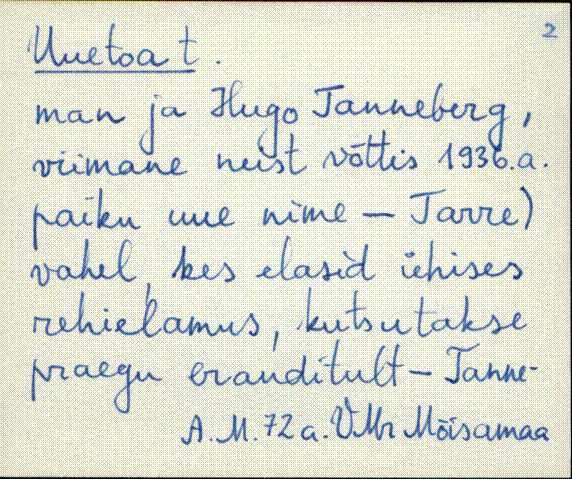 2
Uuetoa t.
man ja Hugo Tanneberg,
viimane neist võttis 1936.a.
paiku uue nime – Tarre)
vahel, kes elasid ühises
rehielamus, kutsutakse
praegu eranditult – Tanne-
A.M. 72 a. VMr Mõisamaa